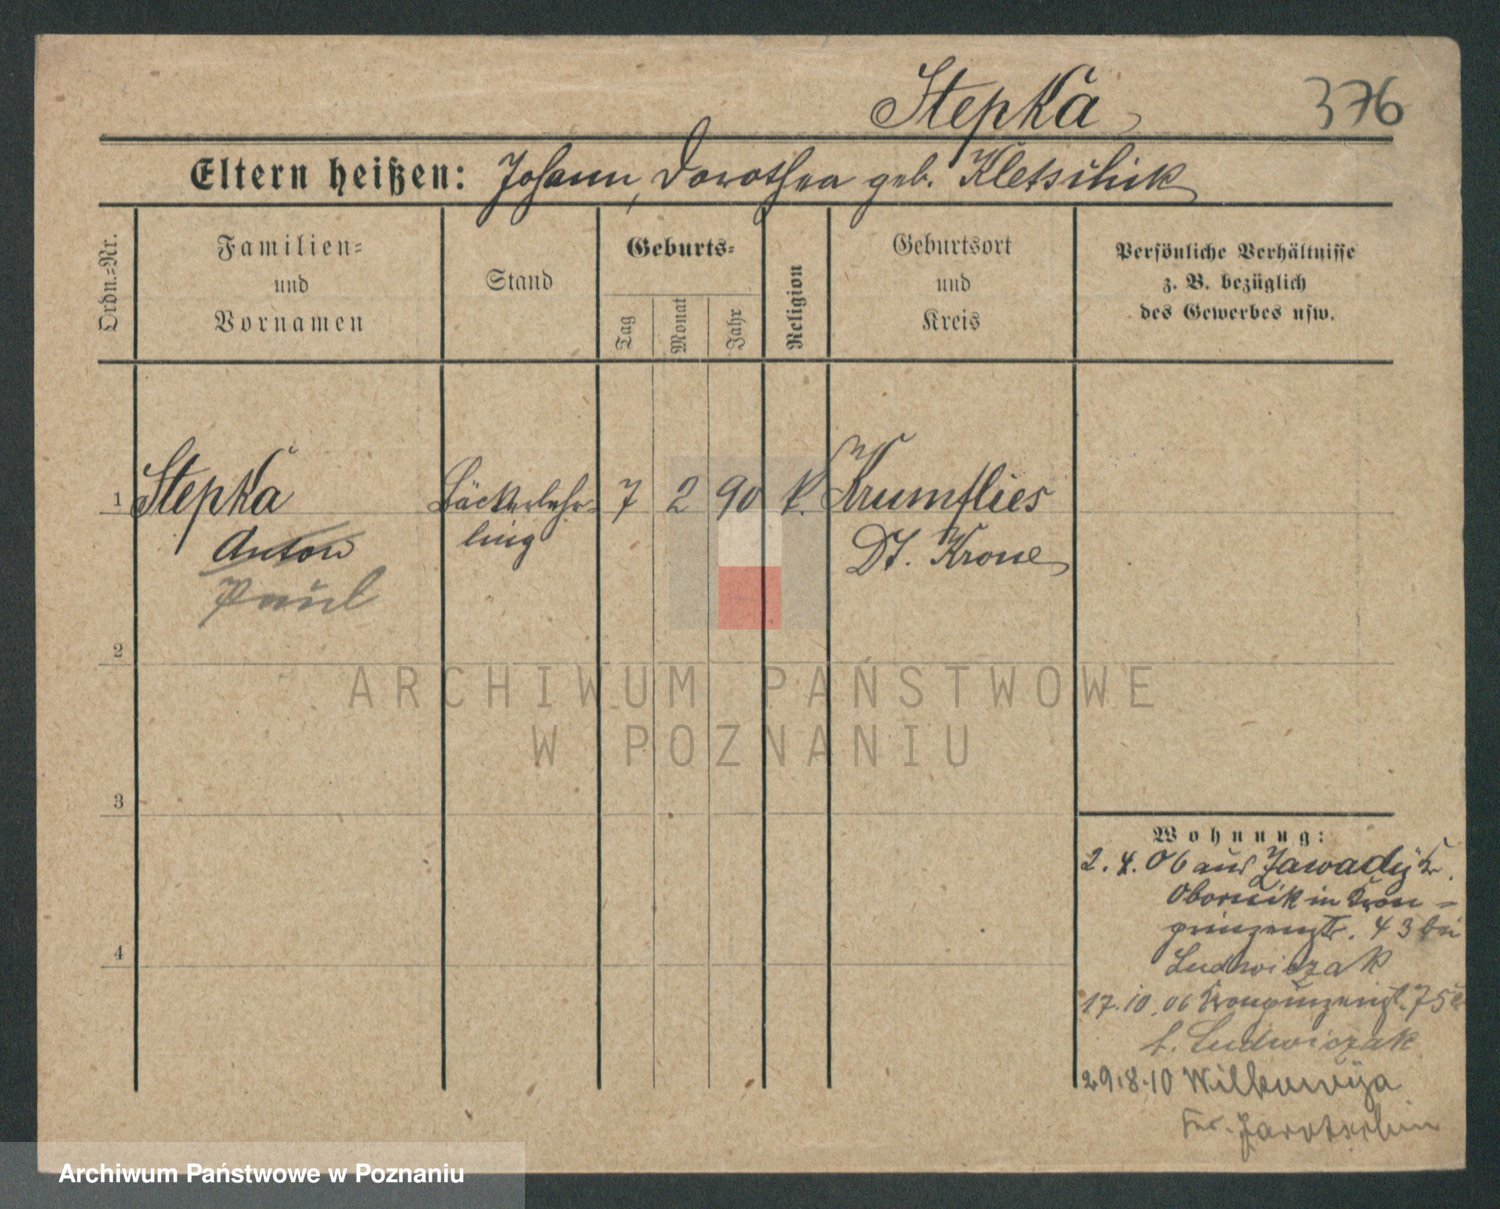 Stepka
376
Eltern heißen: Johann, Dorothea geb. Kletschik
Ordn.-Nr.
Familien-
und
Vornamen
Stand
Geburts-
Tag
Monat
Jahr
Religion
Geburtsort
und
Kreis
Persönliche Verhältnisse
z. B. bezüglich
des Gewerbes usw.
1 Stepka Bäckerlehr- 7 2 90 k. Krumflies
Anton ling Dt. Krone
Paul
2
3
4
ARCHIWUM PAŃSTWOWE
W POZNANIU
Wohnung:
2. 4. 06 aus Zawady Kr.
Obornik in Kron-
prinzenstr. 43 bei
Ludwiczak
17. 10. 06 Kronprinzenstr. 75
b. Ludwiczak
29. 8. 10 Wilkowyja
Kr. Jarotschin
Archiwum Państwowe w Poznaniu